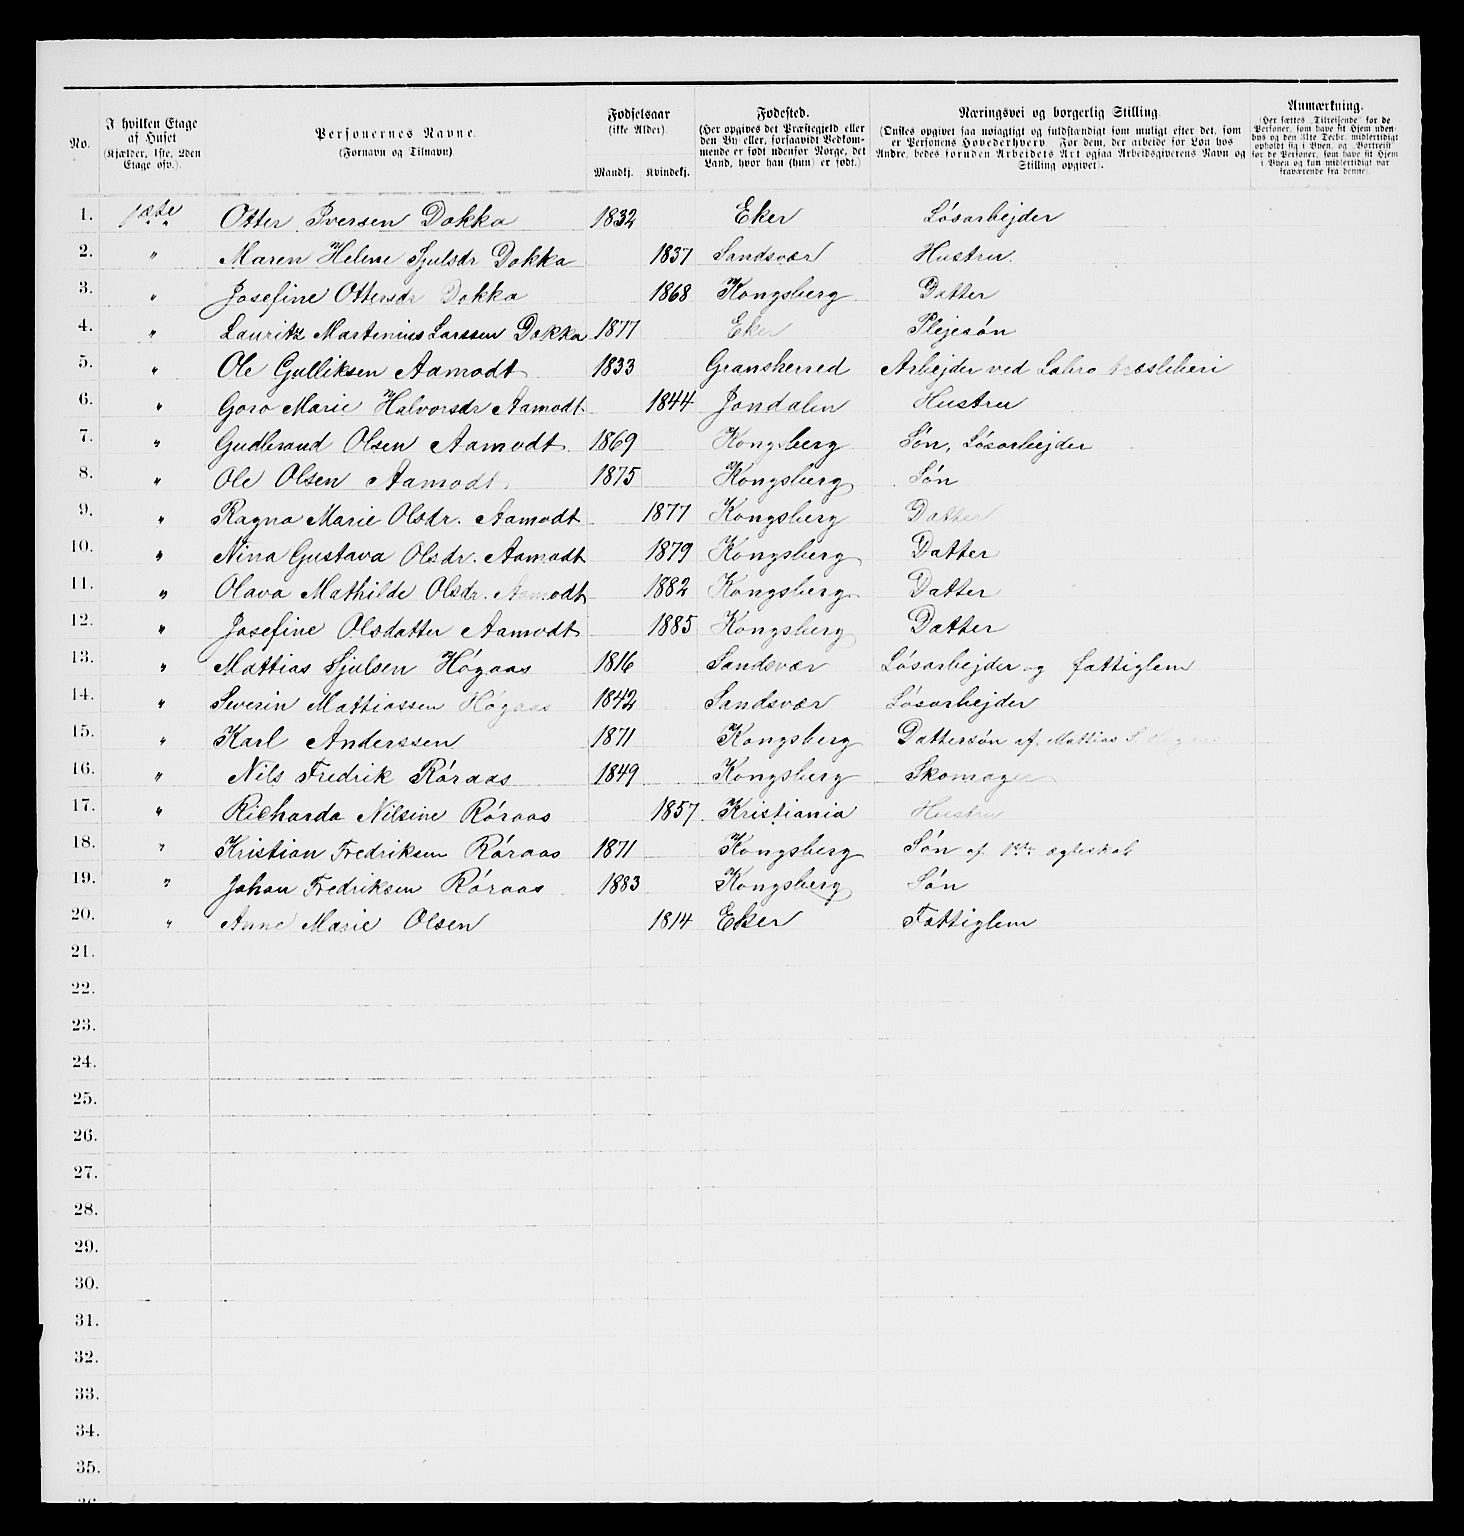 No. | I hvilken Etage af Huset (Kjælder, 1ste, 2den Etage osv.). | Personernes Navne. (Fornavn og Tilnavn). | Fødselsaar (ikke Alder). Mandkj. | Kvindekj. | Fødested. (Her opgives det Præstegjeld eller den By eller, forsaavidt Vedkommende er født udenfor Norge, det Land, hvor han (hun) er født.) | Næringsvei og borgerlig Stilling. (Ønskes opgivet saa nøiagtigt og fuldstændigt som muligt efter det, som er Personens Hovederhverv. For dem, der arbeide for Løn hos Andre, bedes foruden Arbeidets Art ogsaa Arbeidsgiverens Navn og Stilling opgivet). | Anmærkning. (Her sættes "Tilreisende" for de Personer, som have sit Hjem udenbys og den 31te Decbr. midlertidigt opholdt sig i Byen, og "Bortreist" for de Personer, som have sit Hjem i Byen og kun midlertidigt var fraværende fra denne).
1. | 1ste | Otter Iversen Dokka | 1832 | | Eker | Løsarbejder
2. | " | Maren Helene Sjulsdr Dokka | | 1837 | Sandsvær | Hustru.
3. | " | Josefine Ottersdr Dokka | | 1868 | Kongsberg | Datter
4. | " | Lauritz Martinius Larssen Dokka | 1877 | | Eker | Plejesøn
5. | " | Ole Gulliksen Aamodt | 1833 | | Gransherred | Arbejder ved Labro træsliberi
6. | " | Goro Marie Halvorsdr Aamodt | | 1844 | Jondalen | Hustru
7. | " | Gudbrand Olsen Aamodt | 1869 | | Kongsberg | Søn, Løsarbejder
8. | " | Ole Olsen Aamodt | 1875 | | Kongsberg | Søn
9. | " | Ragna Marie Olsdr. Aamodt | | 1877 | Kongsberg | Datter
10. | " | Nina Gustava Olsdr. Aamodt | | 1879 | Kongsberg | Datter
11. | " | Olava Mathilde Olsdr. Aamodt | | 1882 | Kongsberg | Datter
12. | " | Josefine Olsdatter Aamodt | | 1885 | Kongsberg | Datter
13. | " | Mattias Sjulsen Høgaas | 1816 | | Sandsvær | Løsarbejder og fattiglem
14. | " | Severin Mattiassen Høgaas | 1842 | | Sandsvær | Løsarbejder
15. | " | Karl Anderssen | 1871 | | Kongsberg | Dattersøn af Mattias S. Høgaas
16. | " | Nils Fredrik Røraas | 1849 | | Kongsberg | Skomager
17. | " | Richarda Nilsine Røraas | | 1857. | Kristiania | Hustru
18. | " | Kristian Fredriksen Røraas | 1871 | | Kongsberg | Søn af 1ste ægteskab
19. | " | Johan Fredriksen Røraas | 1883 | | Kongsberg | Søn
20. | " | Anne Marie Olsen | | 1814 | Eker | Fattiglem
21.
22.
23.
24.
25.
26.
27.
28.
29.
30.
31.
32.
33.
34.
35.